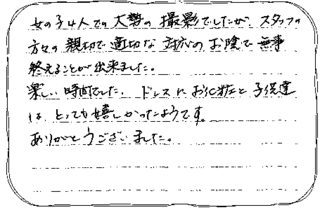 女の子4人での大勢の撮影でしたが、スタッフの
方々の親切で適切な対応のお陰で無事
終えることが出来ました。
楽しい時間でした。ドレスにお化粧と子供達
は、とっても嬉しかったようです。
ありがとうございました。